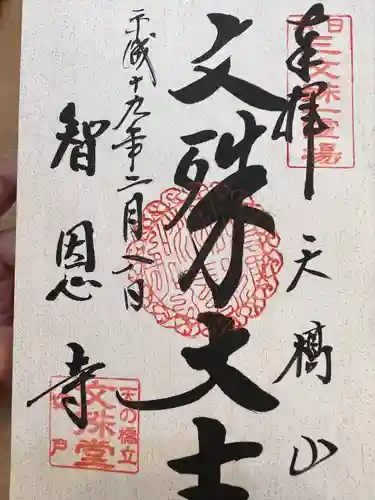 奉拝
天橋山
文殊大士
平成十九年二月八日
智恩寺
日三文殊霊場
天の橋立
文殊堂